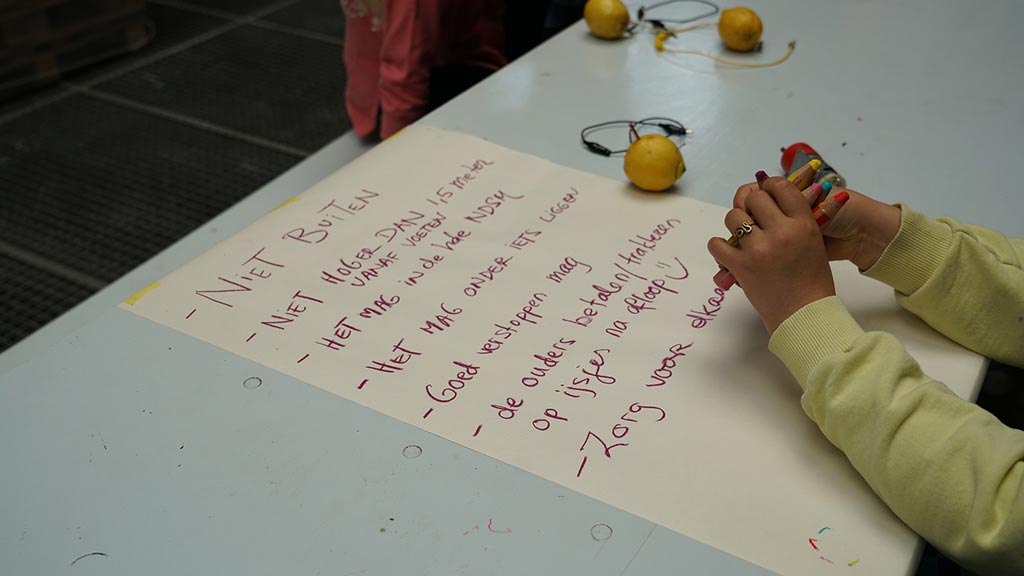 - NIET BUITEN
- NIET HOGER DAN 1,5 meter
VANAF VOETEN
- HET MAG in de hele NDSM
- HET MAG ONDER IETS LIGGEN
- Goed verstoppen mag
- de ouders betalen/trakteren
op ijsjes na afloop
- Zorg voor elkaar